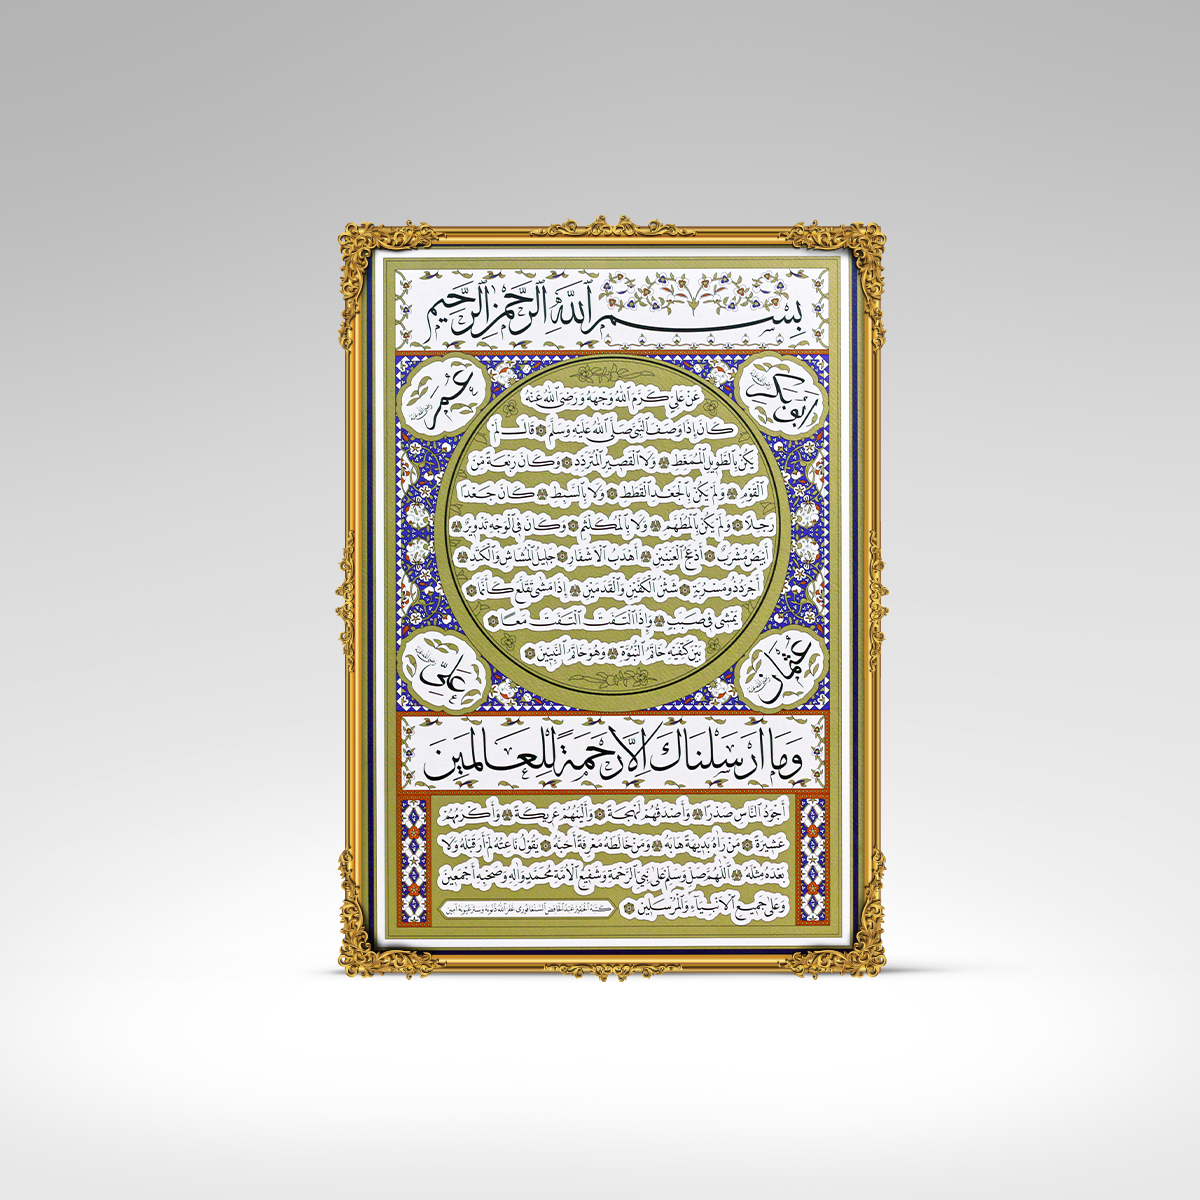 بِسْمِ ٱللَّهِ ٱلرَّحْمَٰنِ ٱلرَّحِيمِ
أبو بكر رضي الله عنه
عمر رضي الله عنه
عَنْ عَلِيٍّ كَرَّمَ اللهُ وَجْهَهُ وَرَضِيَ اللهُ عَنْهُ
كَانَ إِذَا وَصَفَ النَّبِيَّ صَلَّى اللهُ عَلَيْهِ وَسَلَّمَ قَالَ لَمْ
يَكُنْ بِالطَّوِيلِ الْمُمَّغِطِ وَلَا الْقَصِيرِ الْمُتَرَدِّدِ وَكَانَ رَبْعَةً مِنَ
الْقَوْمِ وَلَمْ يَكُنْ بِالْجَعْدِ الْقَطَطِ وَلَا بِالسَّبِطِ كَانَ جَعْدًا
رَجِلًا وَلَمْ يَكُنْ بِالْمُطَهَّمِ وَلَا بِالْمُكَلْثَمِ وَكَانَ فِي الْوَجْهِ تَدْوِيرٌ
أَبْيَضُ مُشْرَبٌ أَدْعَجُ الْعَيْنَيْنِ أَهْدَبُ الْأَشْفَارِ جَلِيلُ الْمُشَاشِ وَالْكَتَدِ
أَجْرَدُ ذُو مَسْرُبَةٍ شَثْنُ الْكَفَّيْنِ وَالْقَدَمَيْنِ إِذَا مَشَى تَقَلَّعَ كَأَنَّمَا
يَمْشِي فِي صَبَبٍ وَإِذَا الْتَفَتَ الْتَفَتَ مَعًا
بَيْنَ كَتِفَيْهِ خَاتَمُ النُّبُوَّةِ وَهُوَ خَاتَمُ النَّبِيِّينَ
عثمان رضي الله عنه
علي رضي الله عنه
وَمَا أَرْسَلْنَاكَ إِلَّا رَحْمَةً لِلْعَالَمِينَ
أَجْوَدُ النَّاسِ صَدْرًا وَأَصْدَقُهُمْ لَهْجَةً وَأَلْيَنُهُمْ عَرِيكَةً وَأَكْرَمُهُمْ
عَشِيرَةً مَنْ رَآهُ بَدِيهَةً هَابَهُ وَمَنْ خَالَطَهُ مَعْرِفَةً أَحَبَّهُ يَقُولُ نَاعِتُهُ لَمْ أَرَ قَبْلَهُ وَلَا
بَعْدَهُ مِثْلَهُ اللَّهُمَّ صَلِّ وَسَلِّمْ عَلَى نَبِيِّ الرَّحْمَةِ وَشَفِيعِ الْأُمَّةِ مُحَمَّدٍ وَآلِهِ وَصَحْبِهِ أَجْمَعِينَ
وَعَلَى جَمِيعِ الْأَنْبِيَاءِ وَالْمُرْسَلِينَ